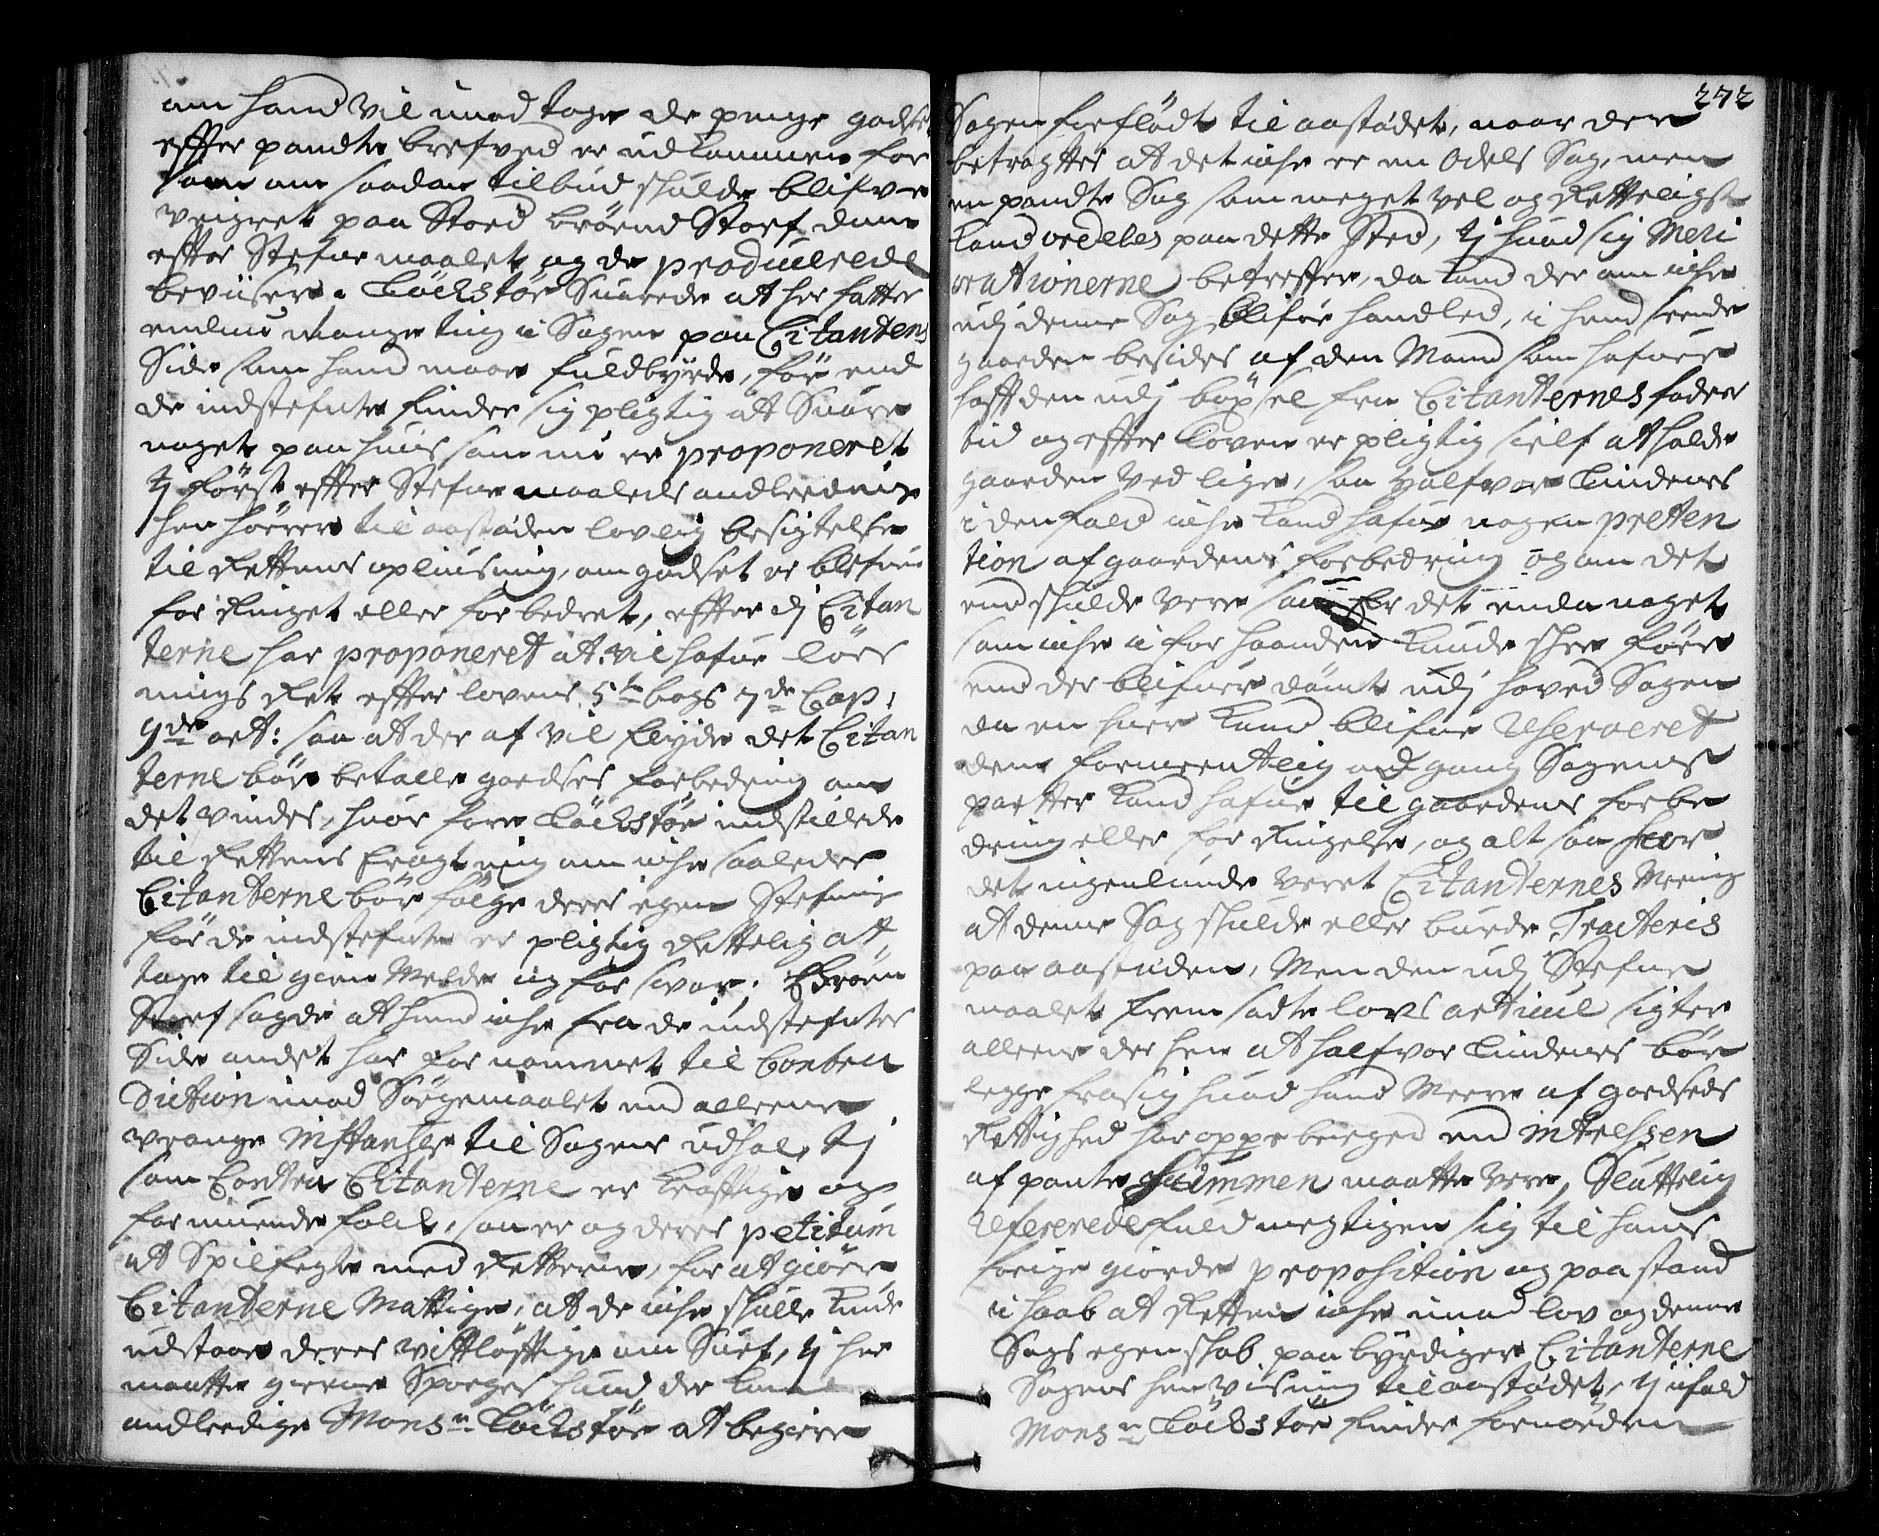 om hand vil imod tage de penge godset
effter pandte brefved er udkommen for
som om saadan tilbud skulde blifve
veigret paa Stoed Brønd Storf dom
effter Stefnemaalet og de producerede
beviiser. Cöchstör Svarede at her fatter
endnu mange ting i Sagen paa Citanters
Side som hand maae fuldbyrde, før end
de indstefnte finder sig pligtig at Svare
noget paa huis som nu er proponeret
tj først effter Stefnemaaleds andleedning
hen hörer til aastæden lovlig besigtelse
til Rettens opliusning, om godset er blefven
for Ringet eller forbedret, effter dj Citan
terne har proponeret at vil hafve løss
nings Ret effter lovens 5te bogs 7de Cap:
9de art: saa at der af vil flyde det Citan
terne bör betalle goedses forbedring om
det vindes, huor fore Cöchstör indstillede
til Rettens Eragtning om iche saaleder
Citanterne bör følge deres egen Stefning
før de indstefnte er pligtig Rettelig at
tage til gien Melde og for svar. Brøen
Storf sagde at hand iche fra de indstefntes
Side andet har for nommet til Contra
Diction imod Sörgemaalet end alleene
vrange instantzer til Sagens udhal, tj
som Contra Citanterne er Kraftige og
formuende folck, saa er og deres petitum
at Spilfegte med Retterne, for at giøre
Citanterne Mattige, at de iche skulle Kunde
udstaae deres vittløfftige om Suef, tj her
maatte gierne Spørges huad der kand
andleedige Monsr. Cöchstör at begiere
272
Sagen forflödt til aastædet, naar der
betragtes at det iche er en Odels Sag, men
en pandte Sag som meget vel og Retteligst
Kand ordeles paa dette Sted, tj huad sig Meli
orationerne betreffer, da Kand der om iche
udj denne Sag blifve handled, i hend seende
gaarden besides af den Mand som hafver
hafft den udj böxsel fra Citanternes faders
tid og effter loven er pligtig sielf at holde
gaarden ved lige, saa Halfvor Lindenes
i den fald iche Kand hafve nogen preten
tion af gaardens forbedring og om det
end skulde vere saa Er det enda noget
som iche i for haanden Kunde skee före
end der blifver dömt udj hoved Sagen
da en huer Kand blifve Reserveret
den formeentlig adgang Sagens
parter Kand hafve til gaardens forbe
dring eller for Ringelse, og alt saa har
det ingenlunde veret Citanternes Mening
at denne Sag skulde eller burde Tracteris
paa aastæden, Men den udj Stefne
maalet frem satte lovs articul sigter
alleene der hen at Halfvor Lindenes bör
legge fra sig huad hand Meere af goedseds
Rettighed har oppe berged end intressen
af pante Summen maatte vere, Sluttelig
Refererede fuldmegtigen sig til hans
forige giorde proposition og paa stand
i haab at Retten iche imod lov og denne
Sags egenskab paabyrdiger Citanterne
Sagens hen visning til aastædet, tj ifald
Monsr. Cöchstör finder fornøeden